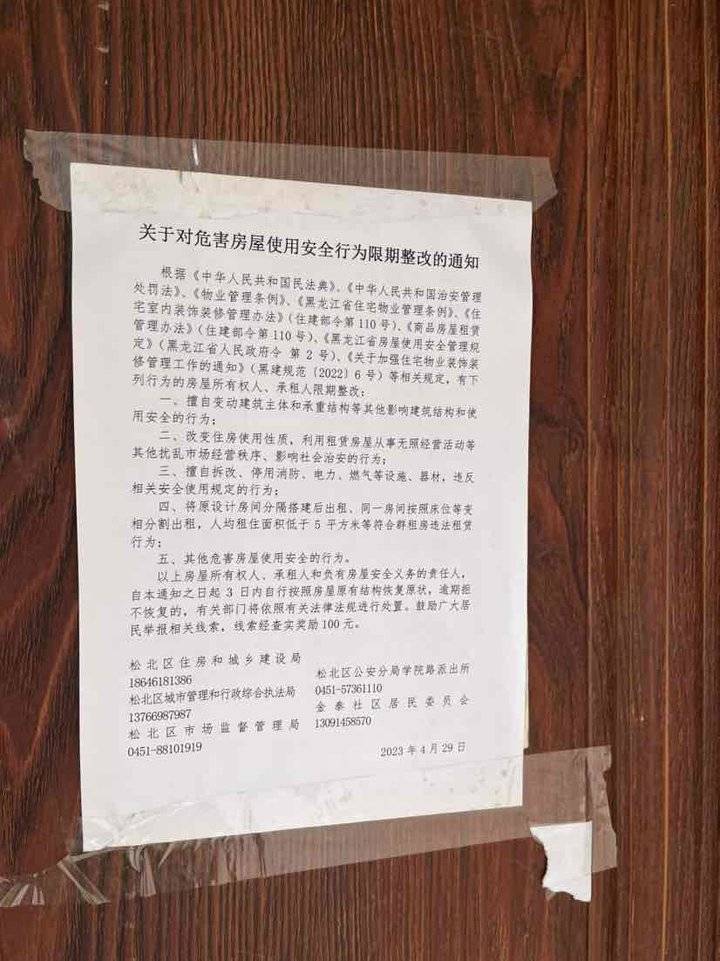 关于对危害房屋使用安全行为限期整改的通知
根据《中华人民共和国民法典》、《中华人民共和国治安管理
处罚法》、《物业管理条例》、《黑龙江省住宅物业管理条例》、《住
宅室内装饰装修管理办法》（住建部令第110号）、《商品房屋租赁
管理办法》（住建部令第110号）、《黑龙江省房屋使用安全管理规
定》（黑龙江省人民政府令 第 2 号）、《关于加强住宅物业装饰装
修管理工作的通知》（黑建规范〔2022〕6 号）等相关规定，有下
列行为的房屋所有权人、承租人限期整改：
一、擅自变动建筑主体和承重结构等其他影响建筑结构和使
用安全的行为；
二、改变住房使用性质，利用租赁房屋从事无照经营活动等
其他扰乱市场经营秩序、影响社会治安的行为；
三、擅自拆改、停用消防、电力、燃气等设施、器材，违反
相关安全使用规定的行为；
四、将原设计房间分隔搭建后出租、同一房间按照床位等变
相分割出租，人均租住面积低于 5 平方米等符合群租房违法租赁
行为；
五、其他危害房屋使用安全的行为。
以上房屋所有权人、承租人和负有房屋安全义务的责任人，
自本通知之日起 3 日内自行按照房屋原有结构恢复原状，逾期拒
不恢复的，有关部门将依照有关法律法规进行处置。鼓励广大居
民举报相关线索，线索经查实奖励100元。
松北区住房和城乡建设局
18646181386
松北区城市管理和行政综合执法局
13766987987
松北区市场监督管理局
0451-88101919
松北区公安分局学院路派出所
0451-57361110
金泰社区居民委员会
13091458570
2023年4月29日